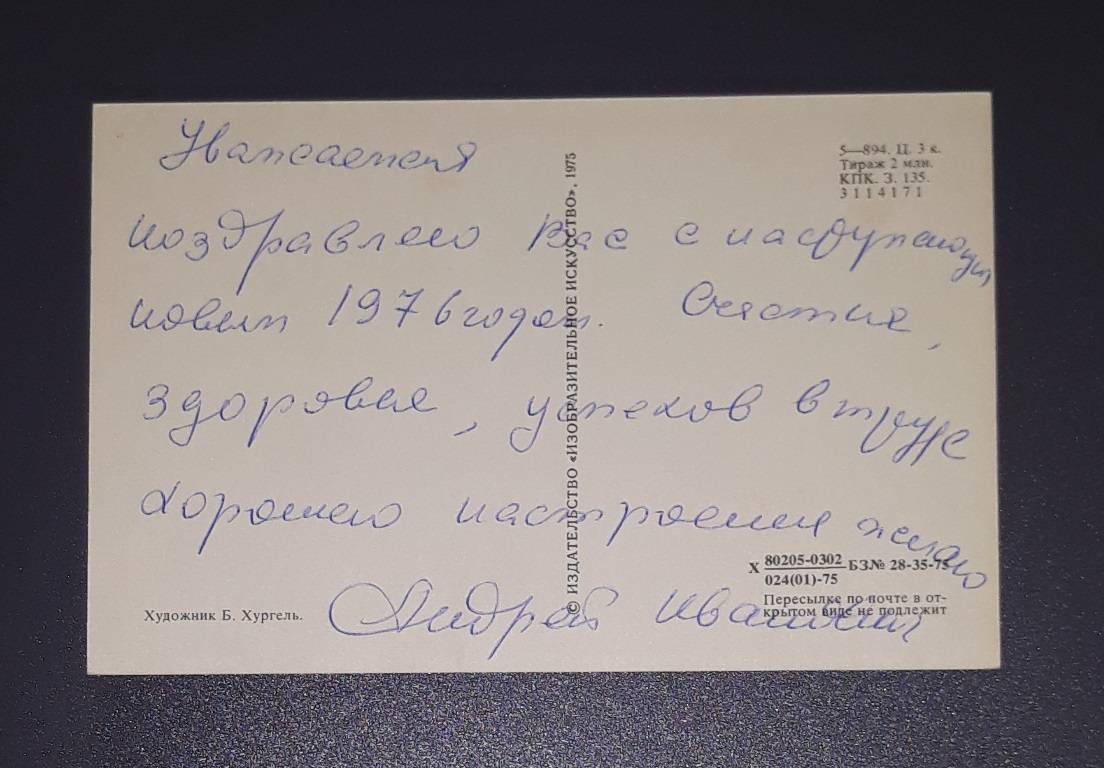 Уважаемая
поздравляю Вас с наступающим
новым 1976 годом. Счастия,
здоровья, успехов в труде
хорошего настроения желаю
Андрей
© ИЗДАТЕЛЬСТВО «ИЗОБРАЗИТЕЛЬНОЕ ИСКУССТВО», 1975
5—894. Ц. 3 к.
Тираж 2 млн.
КПК. З. 135.
3114171
Х 80205-0302 БЗ№ 28-35-75
024(01)-75
Пересылке по почте в от-
крытом виде не подлежит
Художник Б. Хургель.